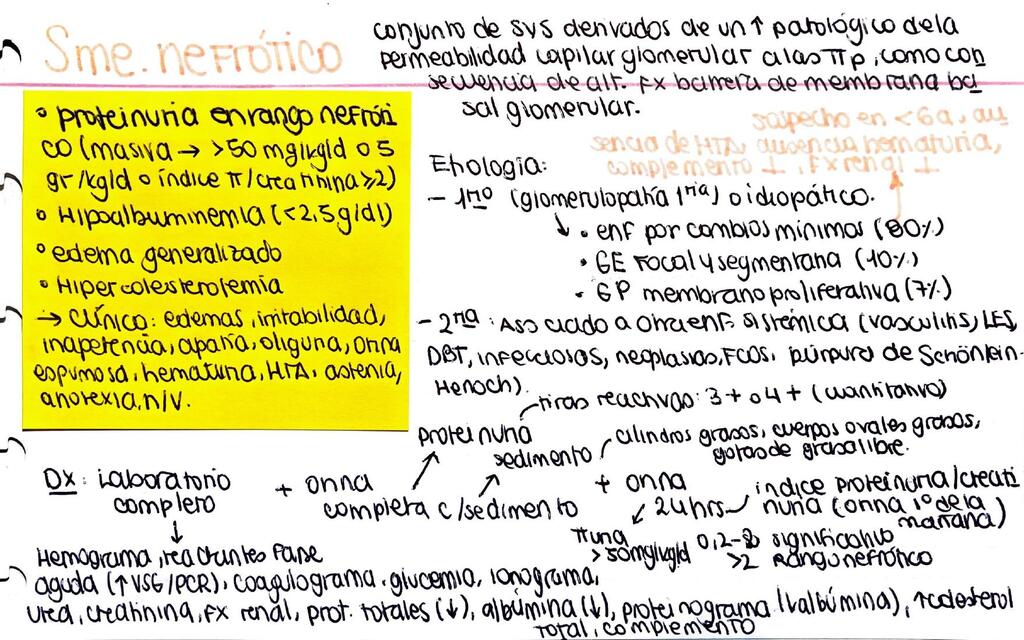 Sme. nefrótico
conjunto de SyS derivados de un ↑ patológico de la
permeabilidad capilar glomerular a las πp, como con
secuencia de alt. Fx barrera de membrana ba
sal glomerular.
° proteinuria en rango nefróti
co (masiva → >50 mg/kg/d o 5
gr/kg/d o índice π/creatinina ≥2)
° Hipoalbuminemia (<2,5 g/dl)
° edema generalizado
° Hipercolesterolemia
→ Clínica: edemas, irritabilidad,
inapetencia, apatía, oliguria, orina
espumosa, hematuria, HTA, astenia,
anorexia, n/v.
sospecho en <6a, au
sencia de HTA, ausencia hematuria,
complemento ⊥, Fx renal ⊥
Etiología:
- 1rio (glomerulopatía 1ria) o idiopático.
• enf por cambios mínimos (80%)
• GE Focal y segmentaria (10%)
• GP membranoproliferativa (7%)
- 2ria: Asociado a otra enf. sistémica (vasculitis, LES,
DBT, infecciosas, neoplasias, FCOS, púrpura de Schönlein-
Henoch).
tiras reactivas: 3+ o 4+ (cuantitativo)
proteinuria
sedimento
cilindros grasos, cuerpos ovales grasos,
gotas de grasa libre.
Dx: Laboratorio
completo
+ orina
completa c/sedimento
+ orina
24hrs
índice proteinuria/creati
nuria (orina 1° de la
mañana)
πuria
>50mg/kg/d
0,2-2 significativo
>2 Rango nefrótico
Hemograma, reactantes fase
aguda (↑VSG/PCR), coagulograma, glucemia, ionograma,
urea, creatinina, Fx renal, prot. totales (↓), albúmina (↓), proteinograma (↓albúmina), ↑colesterol
total, complemento